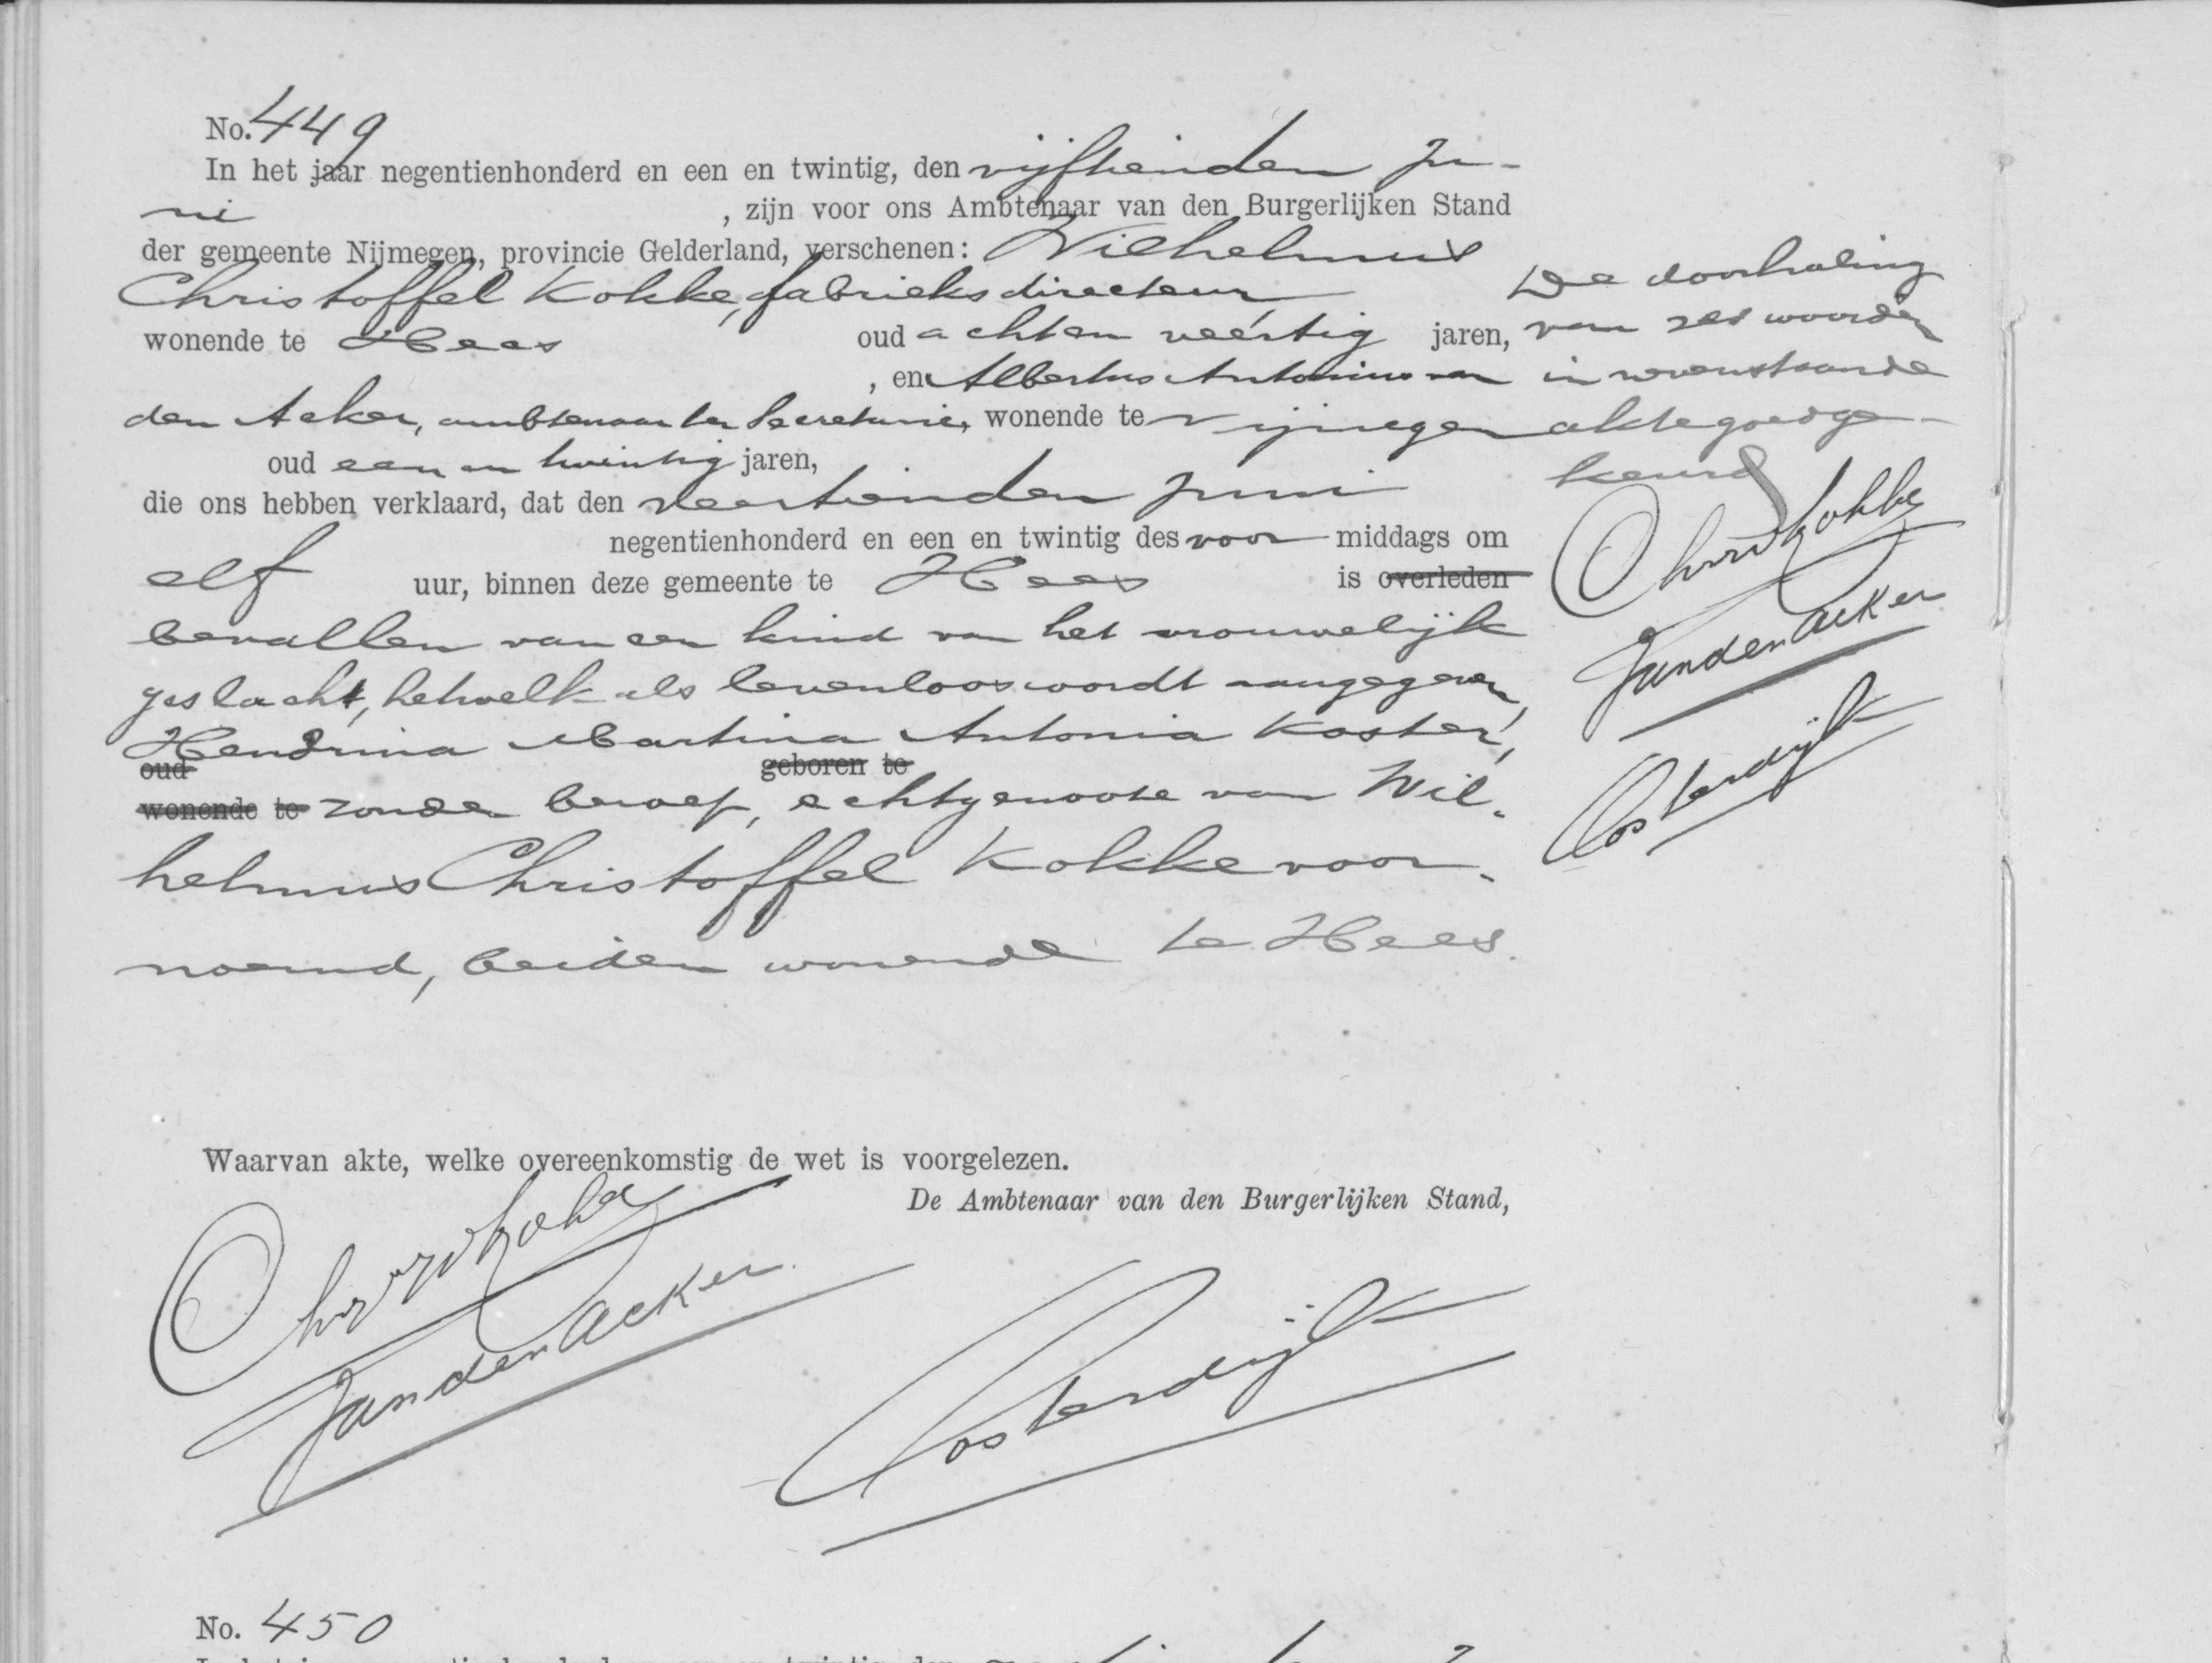 No. 449
In het jaar negentienhonderd en een en twintig, den vijftienden Ju-
ni , zijn voor ons Ambtenaar van den Burgerlijken Stand
der gemeente Nijmegen, provincie Gelderland, verschenen: Wilhelmus
Christoffel Kokke, fabrieksdirecteur,
wonende te Hees oud acht en veertig jaren,
, en Albertus Antonius van
den Acker, ambtenaar ter Secretarie, wonende te Nijmegen
oud een en twintig jaren,
die ons hebben verklaard, dat den veertienden Juni
negentienhonderd en een en twintig des voor middags om
elf uur, binnen deze gemeente te Hees is overleden
bevallen van een kind van het vrouwelijk
geslacht, hetwelk als levenloos wordt aangegeven,
Hendrina Martina Antonia Koster,
oud geboren te
wonende te zonder beroep, echtgenoote van Wil-
helmus Christoffel Kokke voor-
noemd, beiden wonende te Hees.
De doorhaling
van zes woorden
in bovenstaande
akte goedge-
keurd
Chr W Kokke
v an den Acker
Oosterdijk
Waarvan akte, welke overeenkomstig de wet is voorgelezen.
De Ambtenaar van den Burgerlijken Stand,
Kokke
van den Acker
Oosterdijk
No. 450